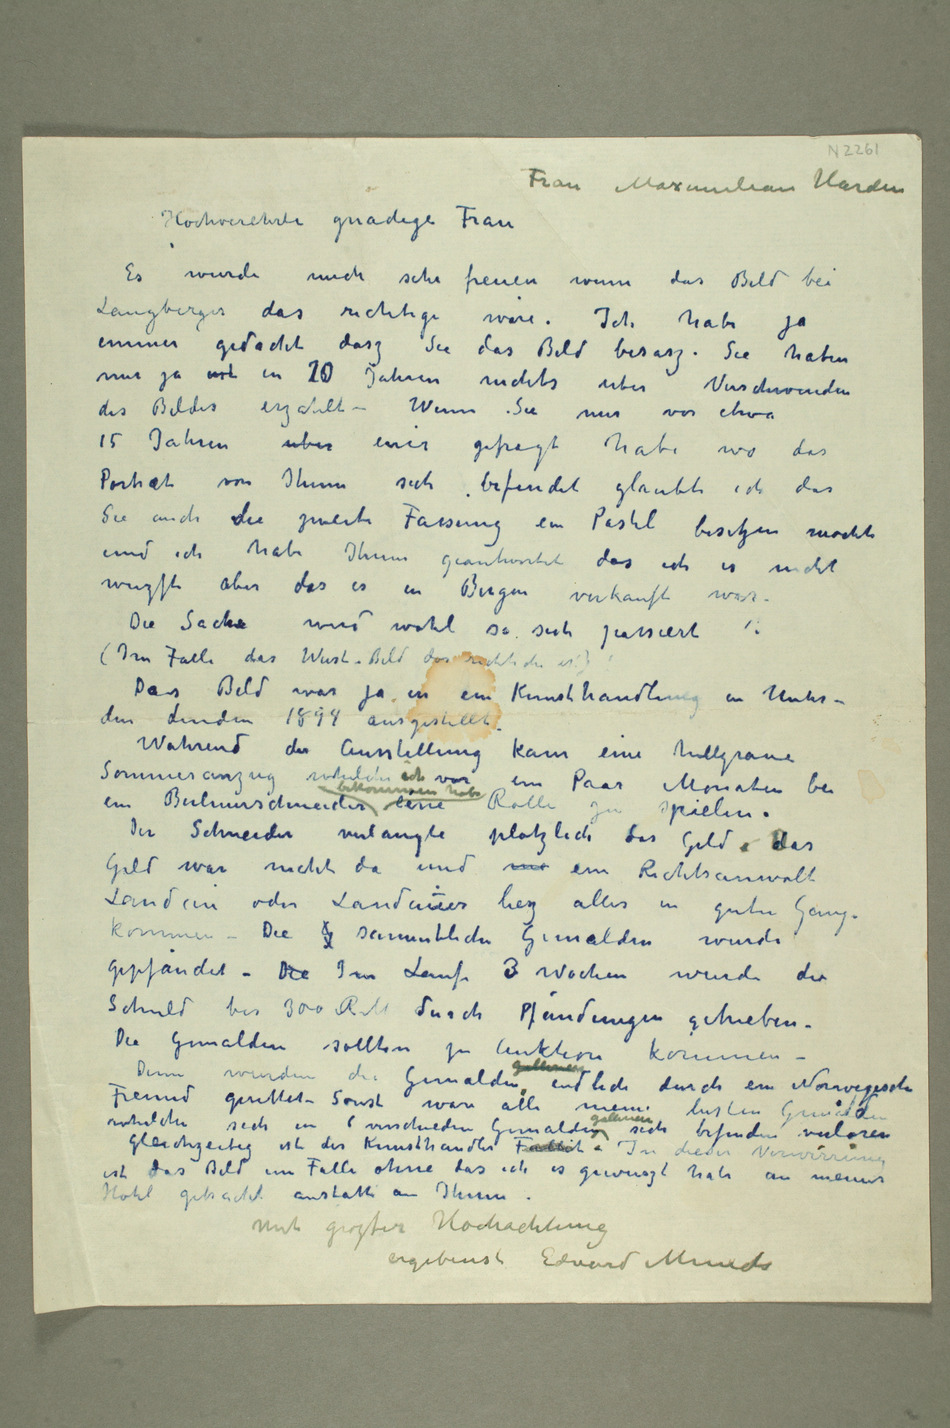 N 2261
Frau Maximilian Harden
Hochverehrte gnadige Frau
Es wurde mich sehr freuen wenn das Bild bei
Langberger das richtige wäre. Ich habe ja
immer gedacht dasz Sie das Bild besasz. Sie haben
mir ja in 20 Jahren nichts uber Verschwinden
des Bildes erzahlt – Wenn Sie mir vor etwa
15 Jahren uber gefragt habe wo das
Portræt von Ihnen sich befindet glaubte ich das
Sie auch die zweite Fassung ein Pastel besitzen mochte
und ich habe Ihnen geantwortet das ich es nicht
wuszte aber das es in Bergen verkauft war.
Die Sache wird wohl so sich passiert !:
(Im Falle das Bild das richtiche ist)
Das Bild war ja in ein Kunsthandlung in Unter-
den Linden 1894 ausgestellt.
Wahrend der Ausstellung kam eine hellgraue
Sommeranzug whelche ich vor ein Paar Monaten bei
bekommen habe
ein Berlinerschneider eine Rolle zu spielen.
Der Schneider verlangte plotzlich das Geld. Das
Geld war nicht da und ein Rechtsanwalt
Landau oder Landauer liesz alles in guten Gang.
kommen – Die sammtliche Gemalden wurde
gepfändet – Im Laufe 3 Wochen wurde die
Schuld bis 300 RM durch Pfändungen getrieben.
Die Gemalden sollten zu Auktion kommen –
Dann wurden die Gemalden endlich durch ein Norwegische
Freund gerettet – Sonst ware alle meine besten Gemälden
whelche sich in verschieden Gemalden galerien sich befinden verloren
Gleichzeitig ist der Kunsthandler Fallit. In dieser Verwirrung
ist das Bild im Falle ohne das ich es gewuszt habe an meines
Hotel gebracht anstatt an Ihnen.
Mit groszter Hochachtung
ergebenst Edvard Munch